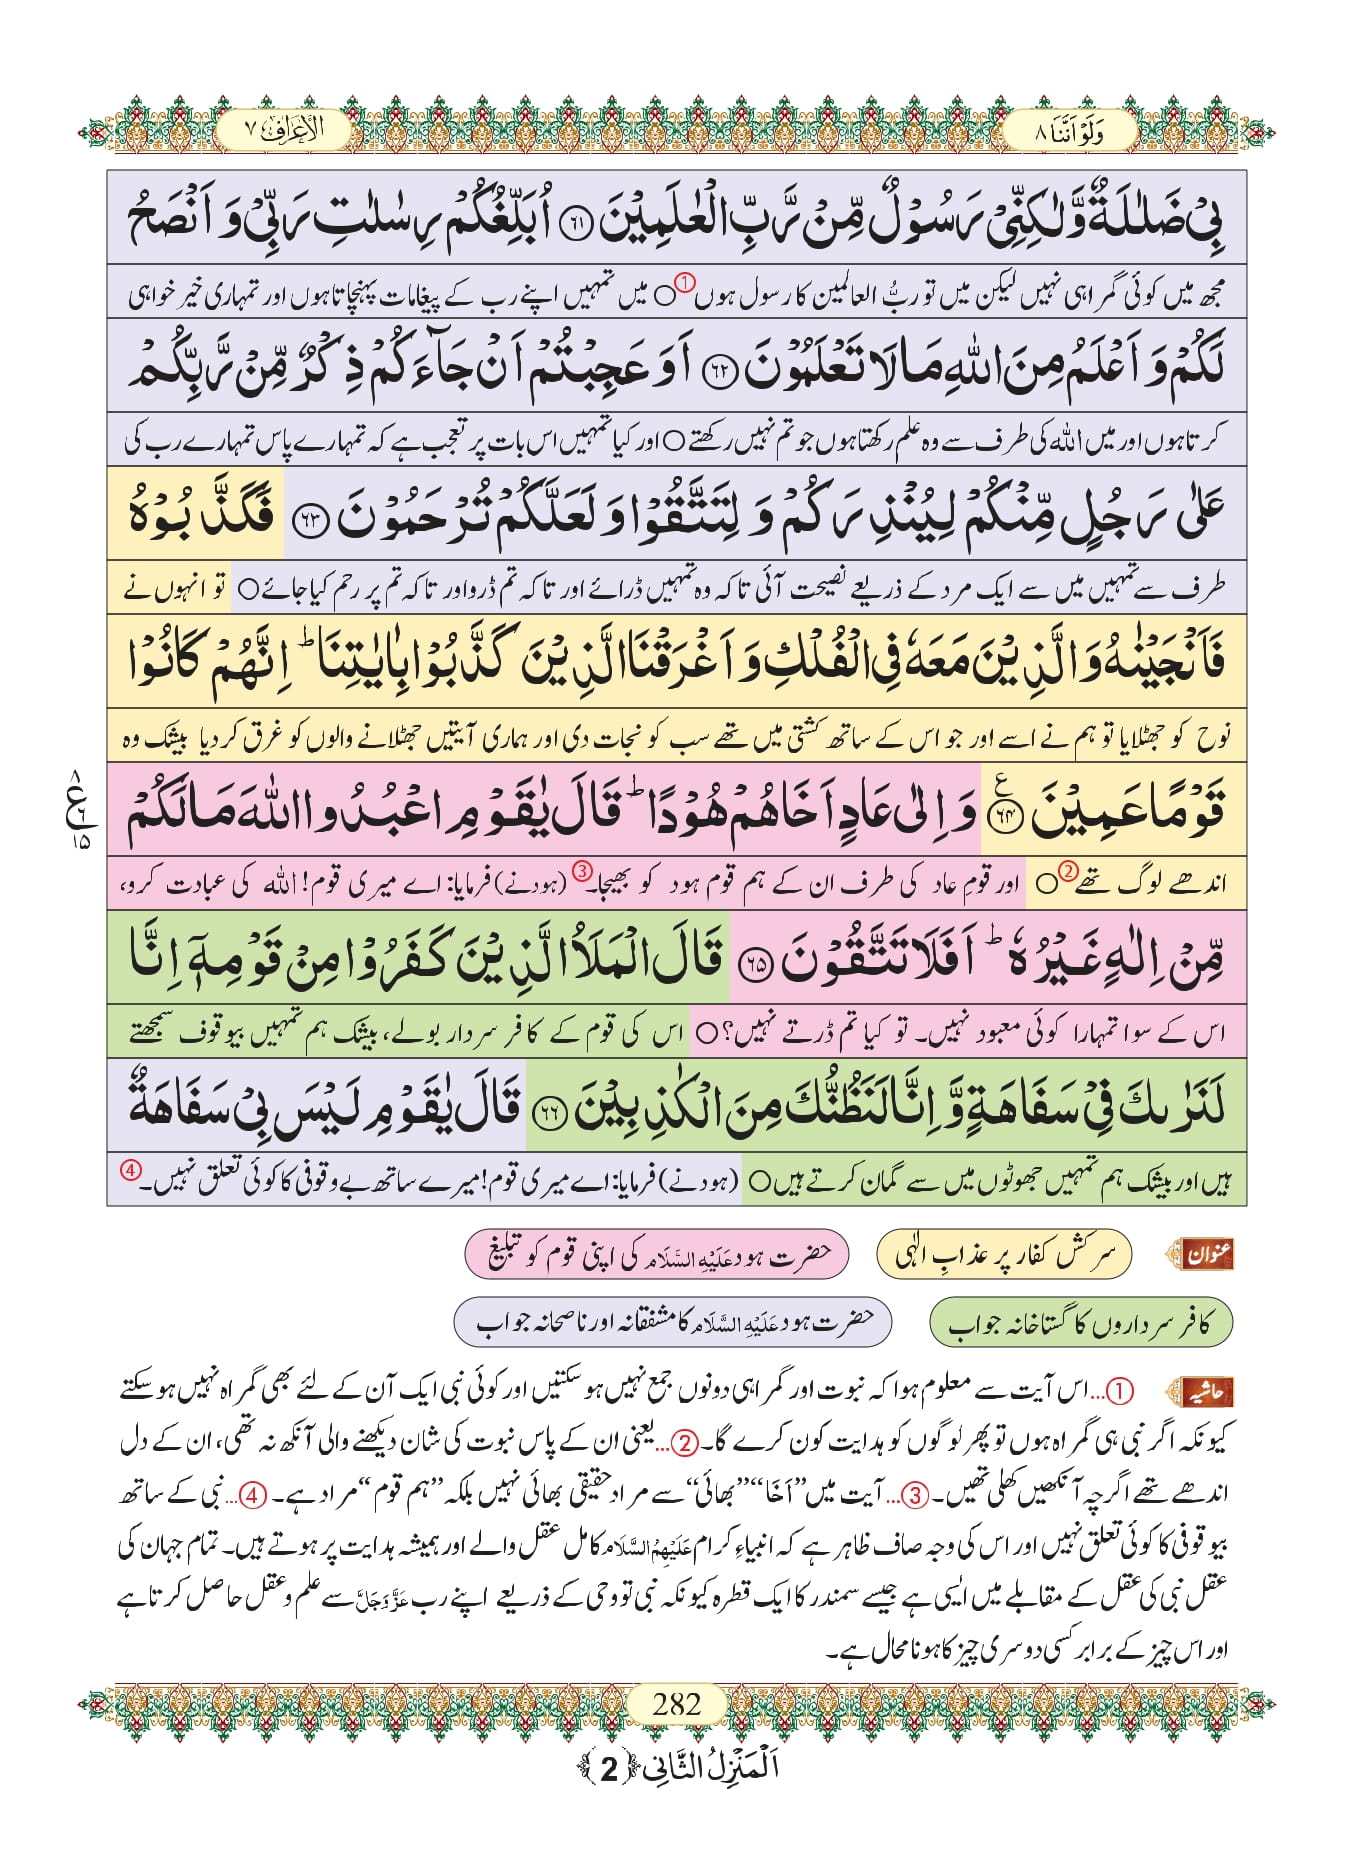 وَلَوْ اَنَّنَا ٨
الْاَعْرَاف ٧
بِیْ ضَلٰلَةٌ وَّلٰكِنِّیْ رَسُوْلٌ مِّنْ رَّبِّ الْعٰلَمِیْنَ ﴿٦١﴾ اُبَلِّغُكُمْ رِسٰلٰتِ رَبِّیْ وَ اَنْصَحُ
مجھ میں کوئی گمراہی نہیں لیکن میں تو ربُّ العالمین کا رسول ہوں ① ○ میں تمہیں اپنے رب کے پیغامات پہنچاتا ہوں اور تمہاری خیر خواہی
لَكُمْ وَ اَعْلَمُ مِنَ اللّٰهِ مَا لَا تَعْلَمُوْنَ ﴿٦٢﴾ اَوَ عَجِبْتُمْ اَنْ جَآءَكُمْ ذِكْرٌ مِّنْ رَّبِّكُمْ
کرتا ہوں اور میں اللہ کی طرف سے وہ علم رکھتا ہوں جو تم نہیں رکھتے ○ اور کیا تمہیں اس بات پر تعجب ہے کہ تمہارے پاس تمہارے رب کی
عَلٰی رَجُلٍ مِّنْكُمْ لِیُنْذِرَكُمْ وَ لِتَتَّقُوْا وَ لَعَلَّكُمْ تُرْحَمُوْنَ ﴿٦٣﴾ فَكَذَّبُوْهُ
طرف سے تمہیں میں سے ایک مرد کے ذریعے نصیحت آئی تاکہ وہ تمہیں ڈرائے اور تاکہ تم ڈرو اور تاکہ تم پر رحم کیا جائے ○ تو انہوں نے
فَاَنْجَیْنٰهُ وَ الَّذِیْنَ مَعَهٗ فِی الْفُلْكِ وَ اَغْرَقْنَا الَّذِیْنَ كَذَّبُوْا بِاٰیٰتِنَا ؕ اِنَّهُمْ كَانُوْا
نوح کو جھٹلایا تو ہم نے اسے اور جو اس کے ساتھ کشتی میں تھے سب کو نجات دی اور ہماری آیتیں جھٹلانے والوں کو غرق کردیا بیشک وہ
قَوْمًا عَمِیْنَ ﴿٦٤﴾ ع وَ اِلٰی عَادٍ اَخَاهُمْ هُوْدًا ؕ قَالَ یٰقَوْمِ اعْبُدُوا اللّٰهَ مَا لَكُمْ
٨ ع ٦ ١٥
اندھے لوگ تھے ② ○ اور قومِ عاد کی طرف ان کے ہم قوم ہود کو بھیجا۔ ③ (ہود نے) فرمایا: اے میری قوم! اللہ کی عبادت کرو،
مِّنْ اِلٰهٍ غَیْرُهٗ ؕ اَفَلَا تَتَّقُوْنَ ﴿٦٥﴾ قَالَ الْمَلَاُ الَّذِیْنَ كَفَرُوْا مِنْ قَوْمِهٖۤ اِنَّا
اس کے سوا تمہارا کوئی معبود نہیں۔ تو کیا تم ڈرتے نہیں؟ ○ اس کی قوم کے کافر سردار بولے، بیشک ہم تمہیں بیوقوف سمجھتے
لَنَرٰىكَ فِیْ سَفَاهَةٍ وَّ اِنَّا لَنَظُنُّكَ مِنَ الْكٰذِبِیْنَ ﴿٦٦﴾ قَالَ یٰقَوْمِ لَیْسَ بِیْ سَفَاهَةٌ
ہیں اور بیشک ہم تمہیں جھوٹوں میں سے گمان کرتے ہیں ○ (ہود نے) فرمایا: اے میری قوم! میرے ساتھ بے وقوفی کا کوئی تعلق نہیں۔ ④
عنوان سرکش کفار پر عذابِ الٰہی حضرت ہود عَلَیْهِ السَّلَام کی اپنی قوم کو تبلیغ
کافر سرداروں کا گستاخانہ جواب حضرت ہود عَلَیْهِ السَّلَام کا مشفقانہ اور ناصحانہ جواب
حاشیہ ①... اس آیت سے معلوم ہوا کہ نبوت اور گمراہی دونوں جمع نہیں ہوسکتیں اور کوئی نبی ایک آن کے لئے بھی گمراہ نہیں ہوسکتے
کیونکہ اگر نبی ہی گمراہ ہوں تو پھر لوگوں کو ہدایت کون کرے گا۔ ②... یعنی ان کے پاس نبوت کی شان دیکھنے والی آنکھ نہ تھی، ان کے دل
اندھے تھے اگرچہ آنکھیں کھلی تھیں۔ ③... آیت میں ”اَخَا“ ”بھائی“ سے مراد حقیقی بھائی نہیں بلکہ ”ہم قوم“ مراد ہے۔ ④... نبی کے ساتھ
بیوقوفی کا کوئی تعلق نہیں اور اس کی وجہ صاف ظاہر ہے کہ انبیاءِ کرام عَلَیْهِمُ السَّلَام کامل عقل والے اور ہمیشہ ہدایت پر ہوتے ہیں۔ تمام جہان کی
عقل نبی کی عقل کے مقابلے میں ایسی ہے جیسے سمندر کا ایک قطرہ کیونکہ نبی تو وحی کے ذریعے اپنے رب عَزَّوَجَلَّ سے علم و عقل حاصل کرتا ہے
اور اس چیز کے برابر کسی دوسری چیز کا ہونا محال ہے۔
282
اَلْمَنْزِلُ الثَّانِی ﴿2﴾